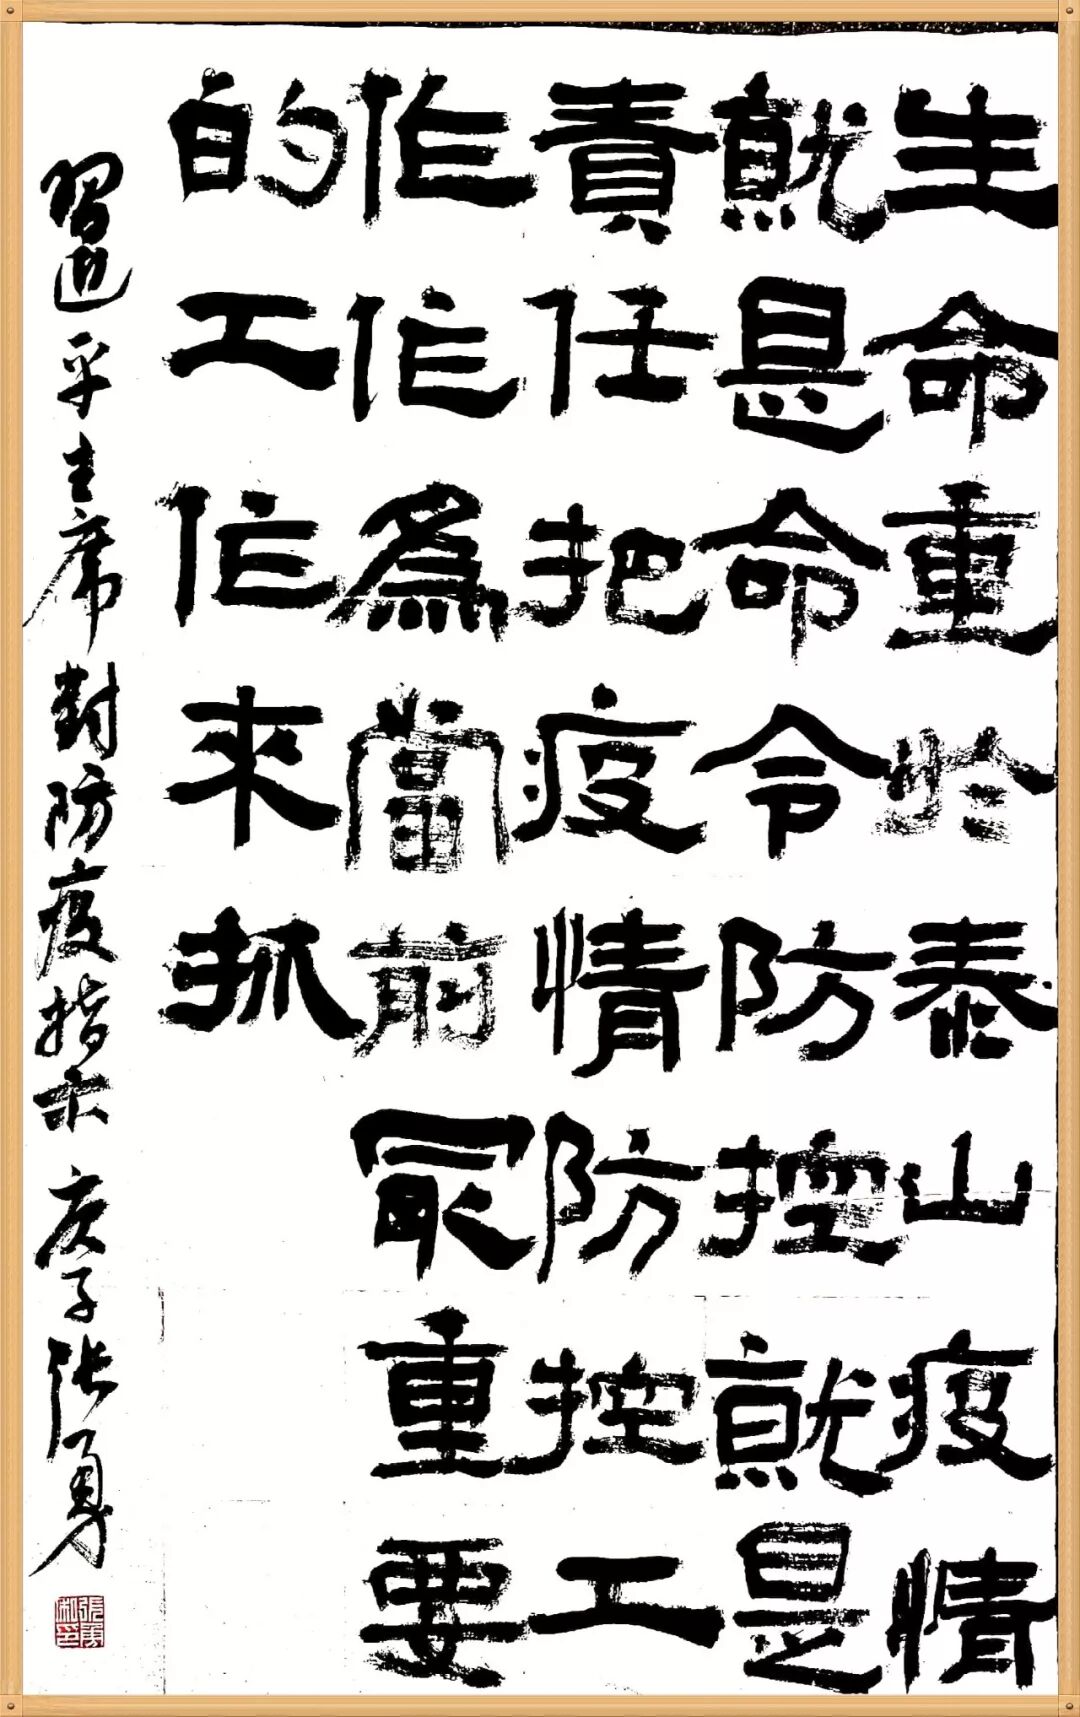 生命重於泰山疫情
就是命令防控就是
責任把疫情防控工
作作為當前最重要
的工作來抓
習近平主席對防疫指示 庚子張勇
張勇私印